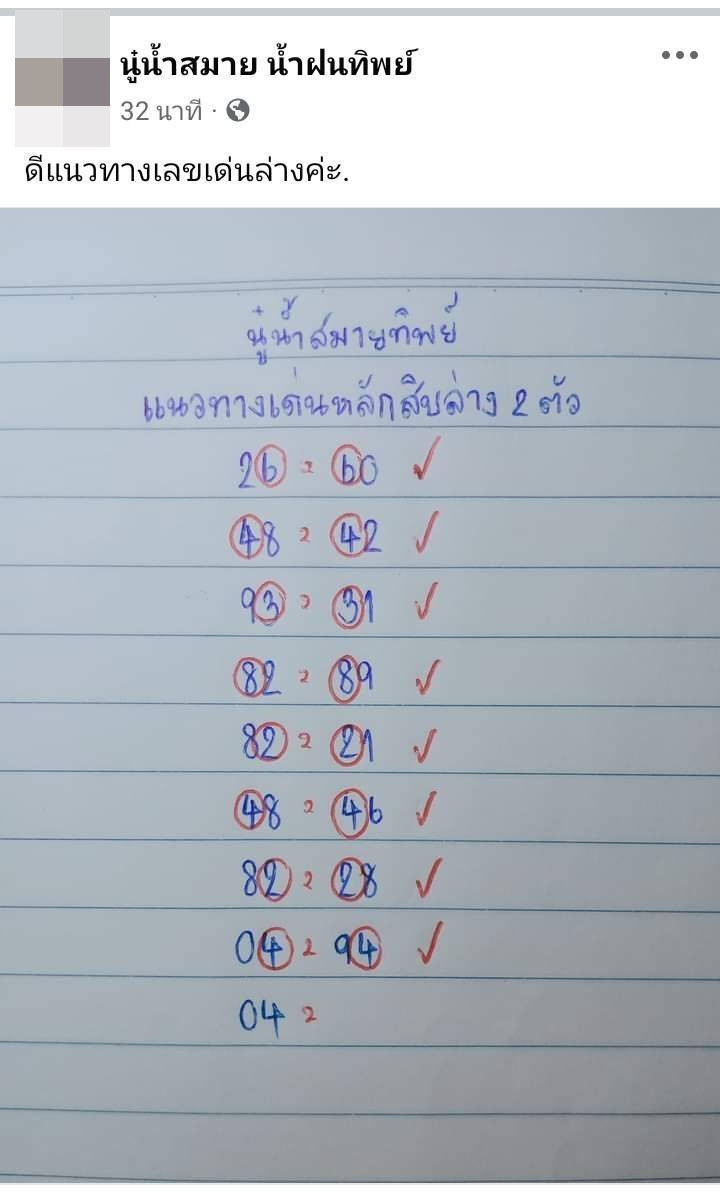 นู๋น้ำสมาย น้ำฝนทิพย์
32 นาที ·
ดีแนวทางเลขเด่นล่างค่ะ.
นู๋น้ำสมายทิพย์
แนวทางเด่นหลักสิบล่าง 2 ตัว
26 = 60 ✓
48 = 42 ✓
93 = 31 ✓
82 = 89 ✓
82 = 21 ✓
48 = 46 ✓
82 = 28 ✓
04 = 94 ✓
04 =